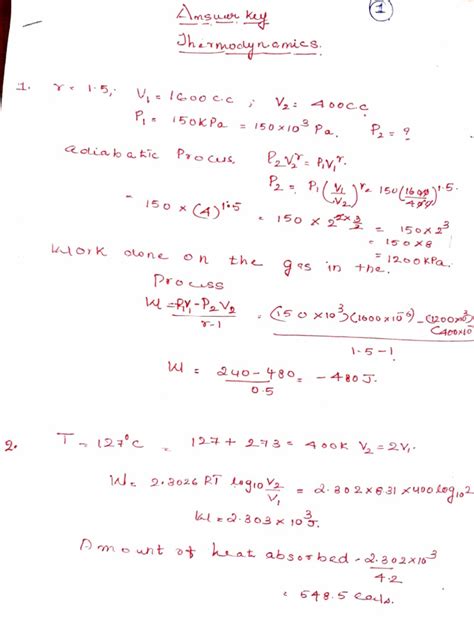 Answer key
①
Thermodynamics.
1. r = 1.5, V₁ = 1600c.c ; V₂ = 400c.c
P₁ = 150kPa = 150×10³ Pa. P₂ = ?
adiabatic Process P₂V₂ʳ = P₁V₁ʳ.
P₂ = P₁(V₁/V₂)ʳ = 150(1600/400)^1.5
= 150 × (4)^1.5 = 150 × 2^(2×3/2) = 150×2³
= 150×8
= 1200kPa.
Work done on the gas in the
Process
W = P₁V₁-P₂V₂/r-1 = (150×10³)(1600×10⁻⁶) - (1200×10³)(400×10⁻⁶)/1.5-1
W = 240-480/0.5 = -480J.
2. T = 127°C = 127+273 = 400K V₂ = 2V₁.
W = 2.3026 RT log₁₀ V₂/V₁ = 2.302×8.31×400log₁₀2
W = 2.303×10³J.
Amount of heat absorbed - 2.302×10³/4.2
= 548.5 cals.